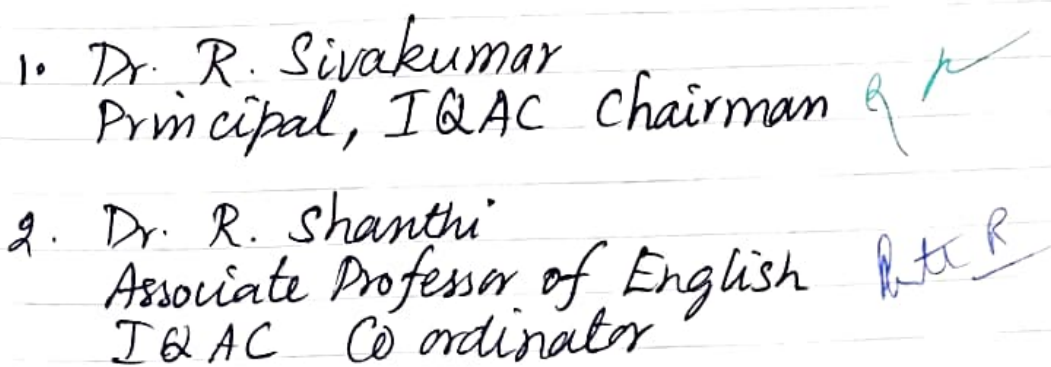 1. Dr. R. Sivakumar
Principal, IQAC Chairman
2. Dr. R. Shanthi
Associate Professor of English
IQAC Co ordinator